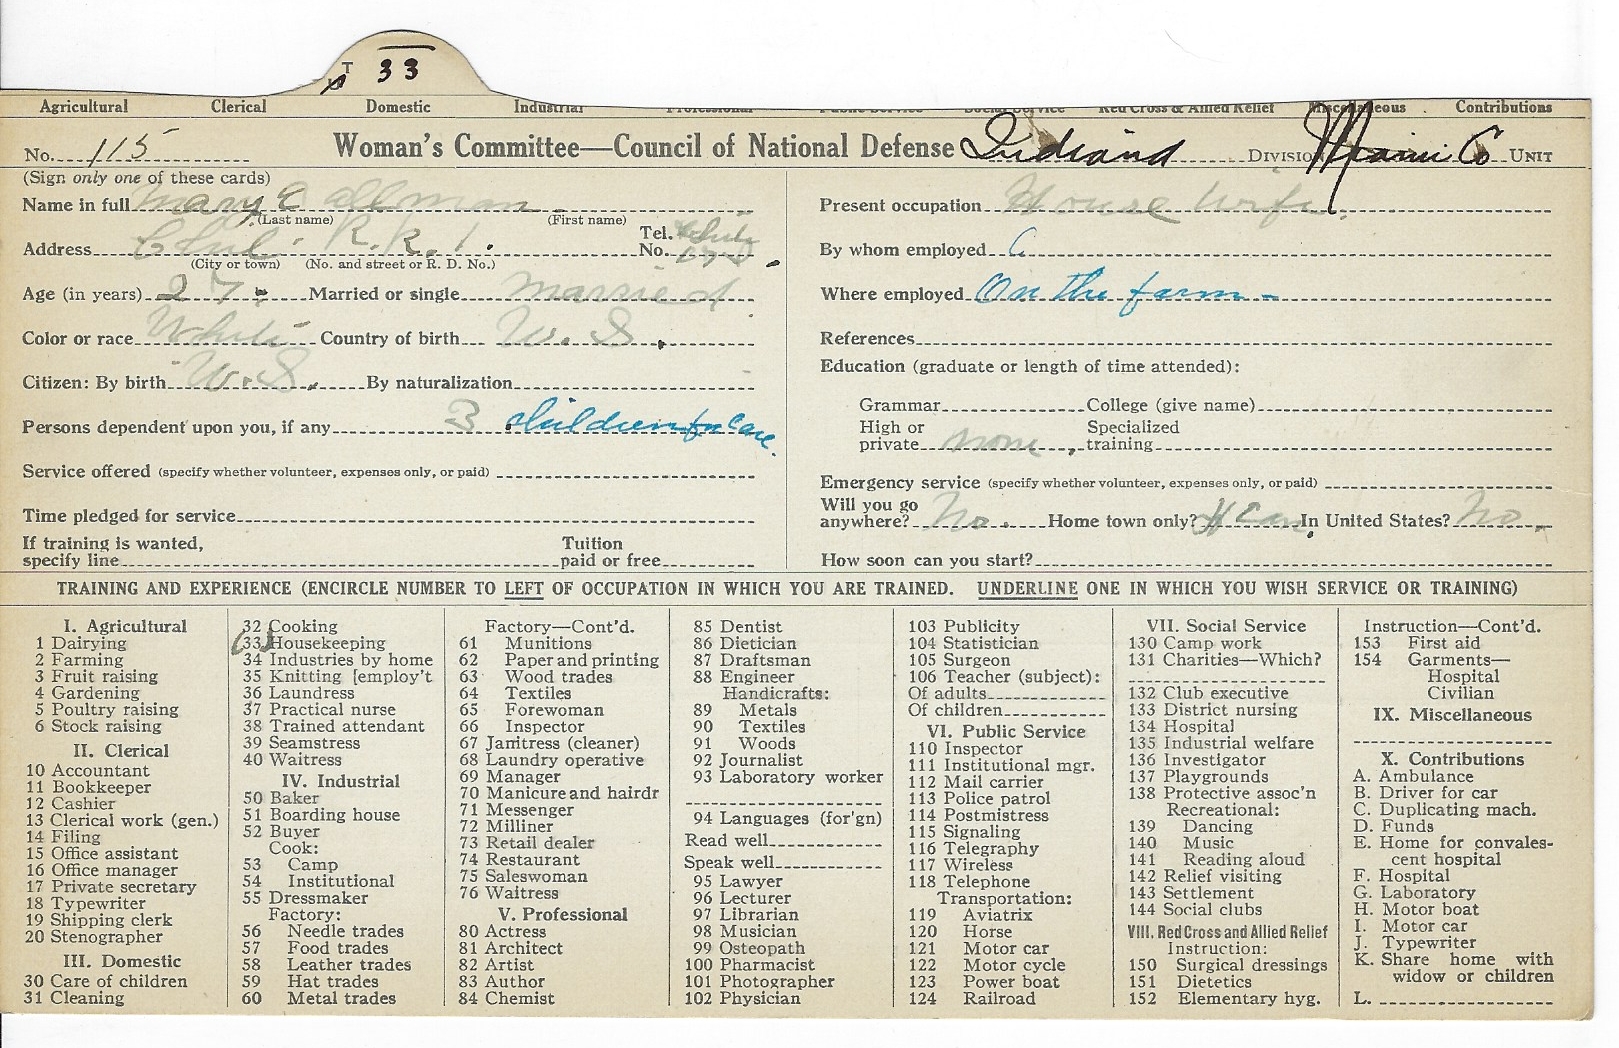 T 33
Agricultural Clerical Domestic Industrial Professional Public Service Social Service Red Cross & Allied Relief Miscellaneous Contributions
No. 115 Woman's Committee—Council of National Defense Indiana DIVISION Miami Co UNIT
(Sign only one of these cards)
Name in full Mary E Allman
(Last name) (First name)
Address R. R. 1. Tel. No.
(City or town) (No. and street or R. D. No.)
Age (in years) 27 Married or single Married
Color or race White Country of birth U. S.
Citizen: By birth U. S. By naturalization
Persons dependent upon you, if any 3 Children for Care.
Service offered (specify whether volunteer, expenses only, or paid)
Time pledged for service
If training is wanted, specify line Tuition paid or free
Present occupation House wife.
By whom employed
Where employed On the farm -
References
Education (graduate or length of time attended):
Grammar College (give name)
High or private none Specialized training
Emergency service (specify whether volunteer, expenses only, or paid)
Will you go anywhere? No. Home town only? In United States? No.
How soon can you start?
TRAINING AND EXPERIENCE (ENCIRCLE NUMBER TO LEFT OF OCCUPATION IN WHICH YOU ARE TRAINED. UNDERLINE ONE IN WHICH YOU WISH SERVICE OR TRAINING)
I. Agricultural
1 Dairying
2 Farming
3 Fruit raising
4 Gardening
5 Poultry raising
6 Stock raising
II. Clerical
10 Accountant
11 Bookkeeper
12 Cashier
13 Clerical work (gen.)
14 Filing
15 Office assistant
16 Office manager
17 Private secretary
18 Typewriter
19 Shipping clerk
20 Stenographer
III. Domestic
30 Care of children
31 Cleaning
32 Cooking
33 Housekeeping
34 Industries by home
35 Knitting [employ't
36 Laundress
37 Practical nurse
38 Trained attendant
39 Seamstress
40 Waitress
IV. Industrial
50 Baker
51 Boarding house
52 Buyer
Cook:
53 Camp
54 Institutional
55 Dressmaker
Factory:
56 Needle trades
57 Food trades
58 Leather trades
59 Hat trades
60 Metal trades
Factory—Cont'd.
61 Munitions
62 Paper and printing
63 Wood trades
64 Textiles
65 Forewoman
66 Inspector
67 Janitress (cleaner)
68 Laundry operative
69 Manager
70 Manicure and hairdr
71 Messenger
72 Milliner
73 Retail dealer
74 Restaurant
75 Saleswoman
76 Waitress
V. Professional
80 Actress
81 Architect
82 Artist
83 Author
84 Chemist
85 Dentist
86 Dietician
87 Draftsman
88 Engineer
Handicrafts:
89 Metals
90 Textiles
91 Woods
92 Journalist
93 Laboratory worker
94 Languages (for'gn)
Read well
Speak well
95 Lawyer
96 Lecturer
97 Librarian
98 Musician
99 Osteopath
100 Pharmacist
101 Photographer
102 Physician
103 Publicity
104 Statistician
105 Surgeon
106 Teacher (subject):
Of adults
Of children
VI. Public Service
110 Inspector
111 Institutional mgr.
112 Mail carrier
113 Police patrol
114 Postmistress
115 Signaling
116 Telegraphy
117 Wireless
118 Telephone
Transportation:
119 Aviatrix
120 Horse
121 Motor car
122 Motor cycle
123 Power boat
124 Railroad
VII. Social Service
130 Camp work
131 Charities—Which?
132 Club executive
133 District nursing
134 Hospital
135 Industrial welfare
136 Investigator
137 Playgrounds
138 Protective assoc'n
Recreational:
139 Dancing
140 Music
141 Reading aloud
142 Relief visiting
143 Settlement
144 Social clubs
VIII. Red Cross and Allied Relief
Instruction:
150 Surgical dressings
151 Dietetics
152 Elementary hyg.
Instruction—Cont'd.
153 First aid
154 Garments—
Hospital
Civilian
IX. Miscellaneous
X. Contributions
A. Ambulance
B. Driver for car
C. Duplicating mach.
D. Funds
E. Home for convales-
cent hospital
F. Hospital
G. Laboratory
H. Motor boat
I. Motor car
J. Typewriter
K. Share home with
widow or children
L.